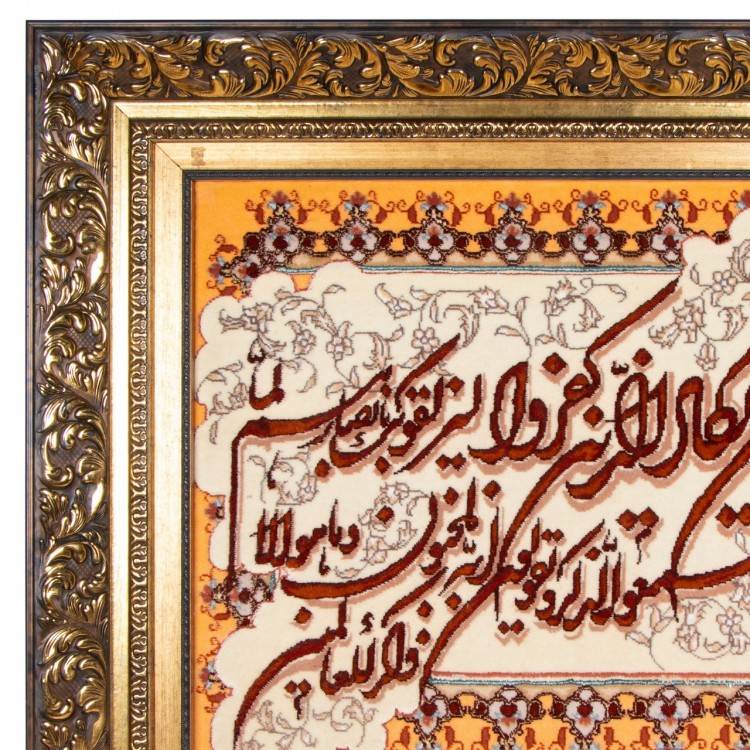 یکاد الذین کفروا لیزلقونک بأبصارهم لما
سمعوا الذکر و یقولون إنه لمجنون و ما هو إلا
ذکر للعالمین